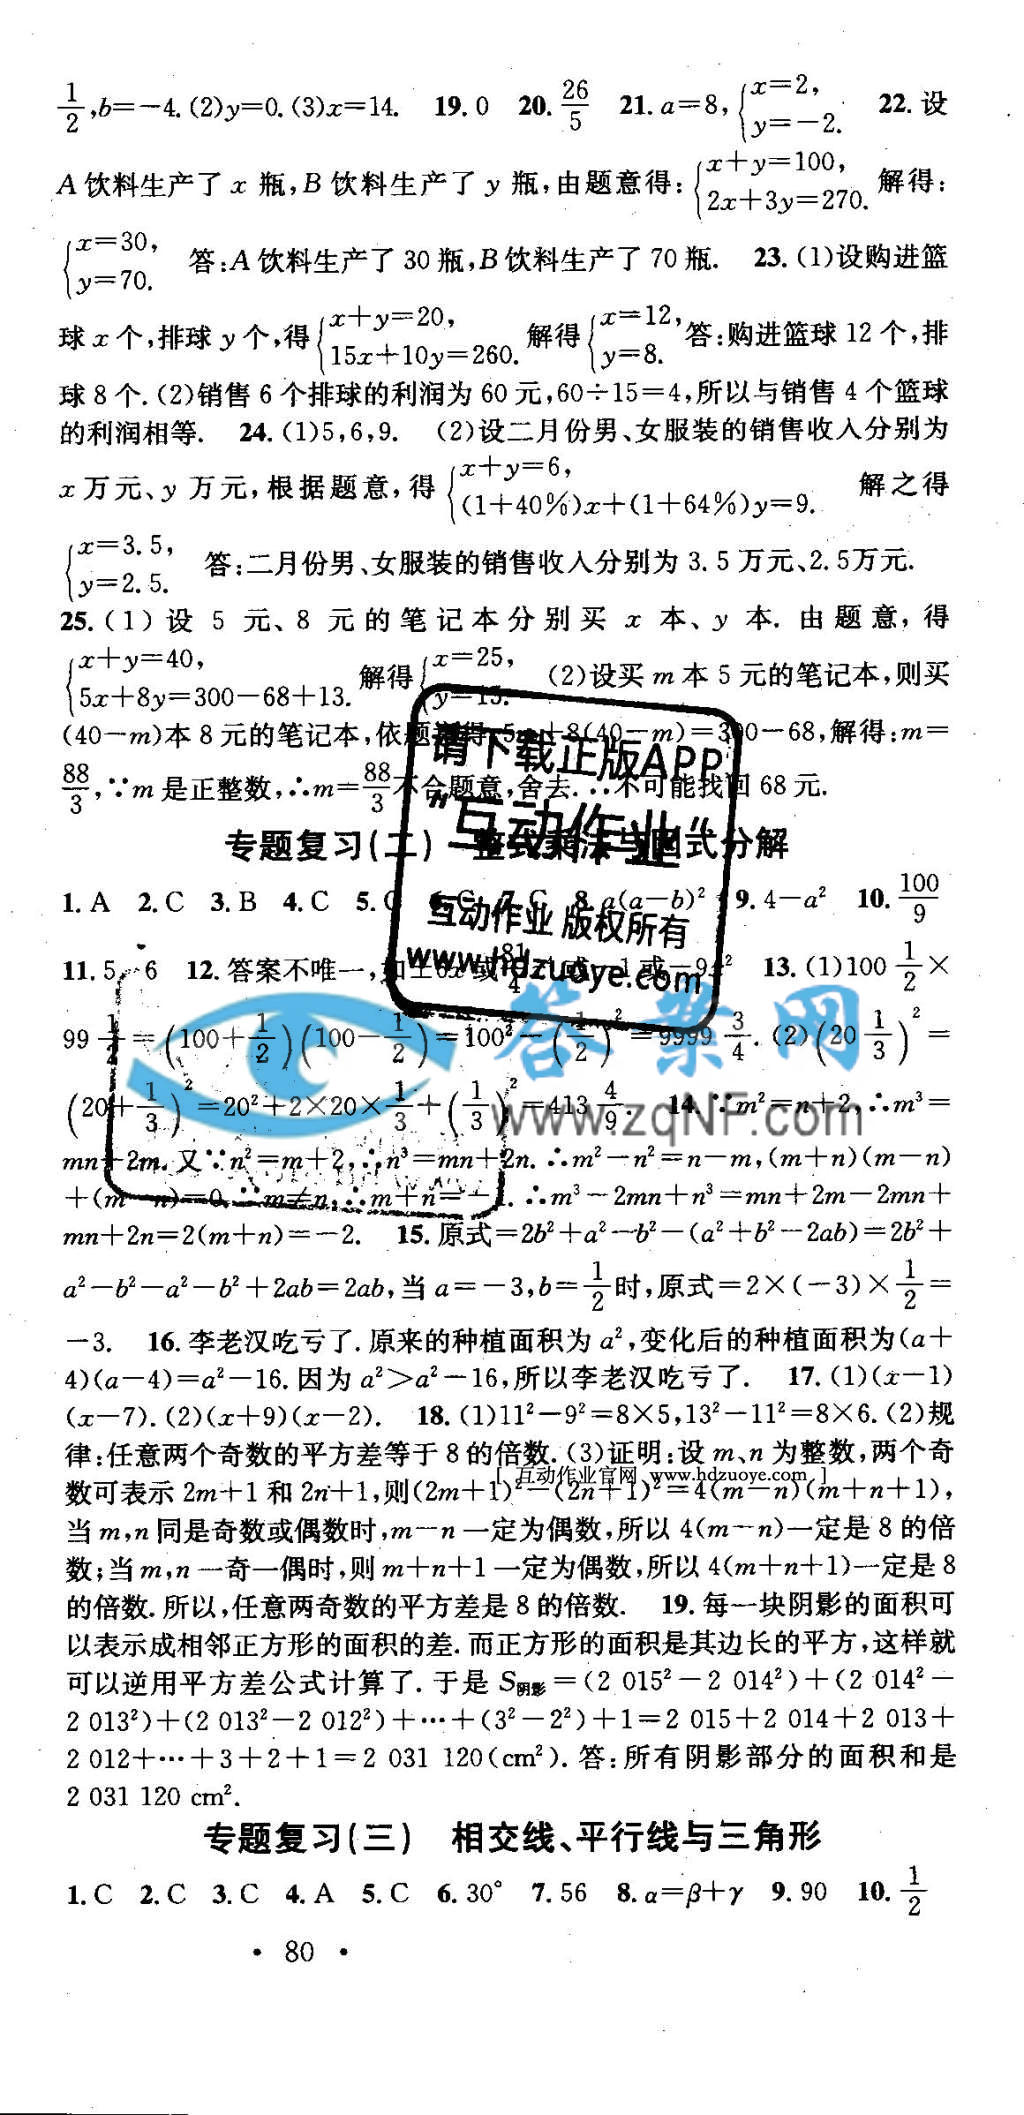 1/2,b=-4.(2)y=0.(3)x=14. 19.0 20.26/5 21.a=8,{x=2, y=-2. 22.设
A饮料生产了x瓶,B饮料生产了y瓶,由题意得:{x+y=100, 2x+3y=270. 解得:
{x=30, y=70. 答:A饮料生产了30瓶,B饮料生产了70瓶. 23.(1)设购进篮
球x个,排球y个,得{x+y=20, 15x+10y=260. 解得{x=12, y=8. 答:购进篮球12个,排
球8个.(2)销售6个排球的利润为60元,60÷15=4,所以与销售4个篮球
的利润相等. 24.(1)5,6,9. (2)设二月份男、女服装的销售收入分别为
x万元、y万元,根据题意,得{x+y=6, (1+40%)x+(1+64%)y=9. 解之得
{x=3.5, y=2.5. 答:二月份男、女服装的销售收入分别为3.5万元、2.5万元.
25.(1)设5元、8元的笔记本分别买x本、y本.由题意,得
{x+y=40, 5x+8y=300-68+13. 解得{x=25, y=15. (2)设买m本5元的笔记本,则买
(40-m)本8元的笔记本,依题意得,5m+8(40-m)=300-68,解得:m=
88/3,∵m是正整数,∴m=88/3不合题意,舍去.∴不可能找回68元.
请下载正版APP
"互动作业"
互动作业 版权所有
www.hdzuoye.com
专题复习(二) 整式乘法与因式分解
1.A 2.C 3.B 4.C 5.C 6.C 7.C 8.a(a-b)² 9.4-a² 10.100/9
11.5 -6 12.答案不唯一, 81/4 或-1或 13.(1)100 1/2×
99 1/2=(100+1/2)(100-1/2)=100²-(1/2)²=9999 3/4.(2)(20 1/3)²=
(20+1/3)²=20²+2×20×1/3+(1/3)²=413 4/9. 14.∵m²=n+2,∴m³=
答案网
www.zqNF.com
mn+2m.又∵n²=m+2,∴n³=mn+2n.∴m²-n²=n-m,(m+n)(m-n)
+(m-n)=0.∵m≠n,∴m+n=-1.∴m³-2mn+n³=mn+2m-2mn+
mn+2n=2(m+n)=-2. 15.原式=2b²+a²-b²-(a²+b²-2ab)=2b²+
a²-b²-a²-b²+2ab=2ab,当a=-3,b=1/2时,原式=2×(-3)×1/2=
-3. 16.李老汉吃亏了.原来的种植面积为a²,变化后的种植面积为(a+
4)(a-4)=a²-16.因为a²>a²-16,所以李老汉吃亏了. 17.(1)(x-1)
(x-7).(2)(x+9)(x-2). 18.(1)11²-9²=8×5,13²-11²=8×6.(2)规
律:任意两个奇数的平方差等于8的倍数.(3)证明:设m、n为整数,两个奇
[ 互动作业官网 www.hdzuoye.com ]
数可表示2m+1和2n+1,则(2m+1)²-(2n+1)²=4(m-n)(m+n+1),
当m,n同是奇数或偶数时,m-n一定为偶数,所以4(m-n)一定是8的倍
数;当m,n一奇一偶时,则m+n+1一定为偶数,所以4(m+n+1)一定是8
的倍数.所以,任意两奇数的平方差是8的倍数. 19.每一块阴影的面积可
以表示成相邻正方形的面积的差.而正方形的面积是其边长的平方,这样就
可以逆用平方差公式计算了.于是S阴影=(2 015²-2 014²)+(2 014²-
2 013²)+(2 013²-2 012²)+…+(3²-2²)+1=2 015+2 014+2 013+
2 012+…+3+2+1=2 031 120(cm²).答:所有阴影部分的面积和是
2 031 120 cm².
专题复习(三) 相交线、平行线与三角形
1.C 2.C 3.C 4.A 5.C 6.30° 7.56 8.α=β+γ 9.90 10.1/2
• 80 •